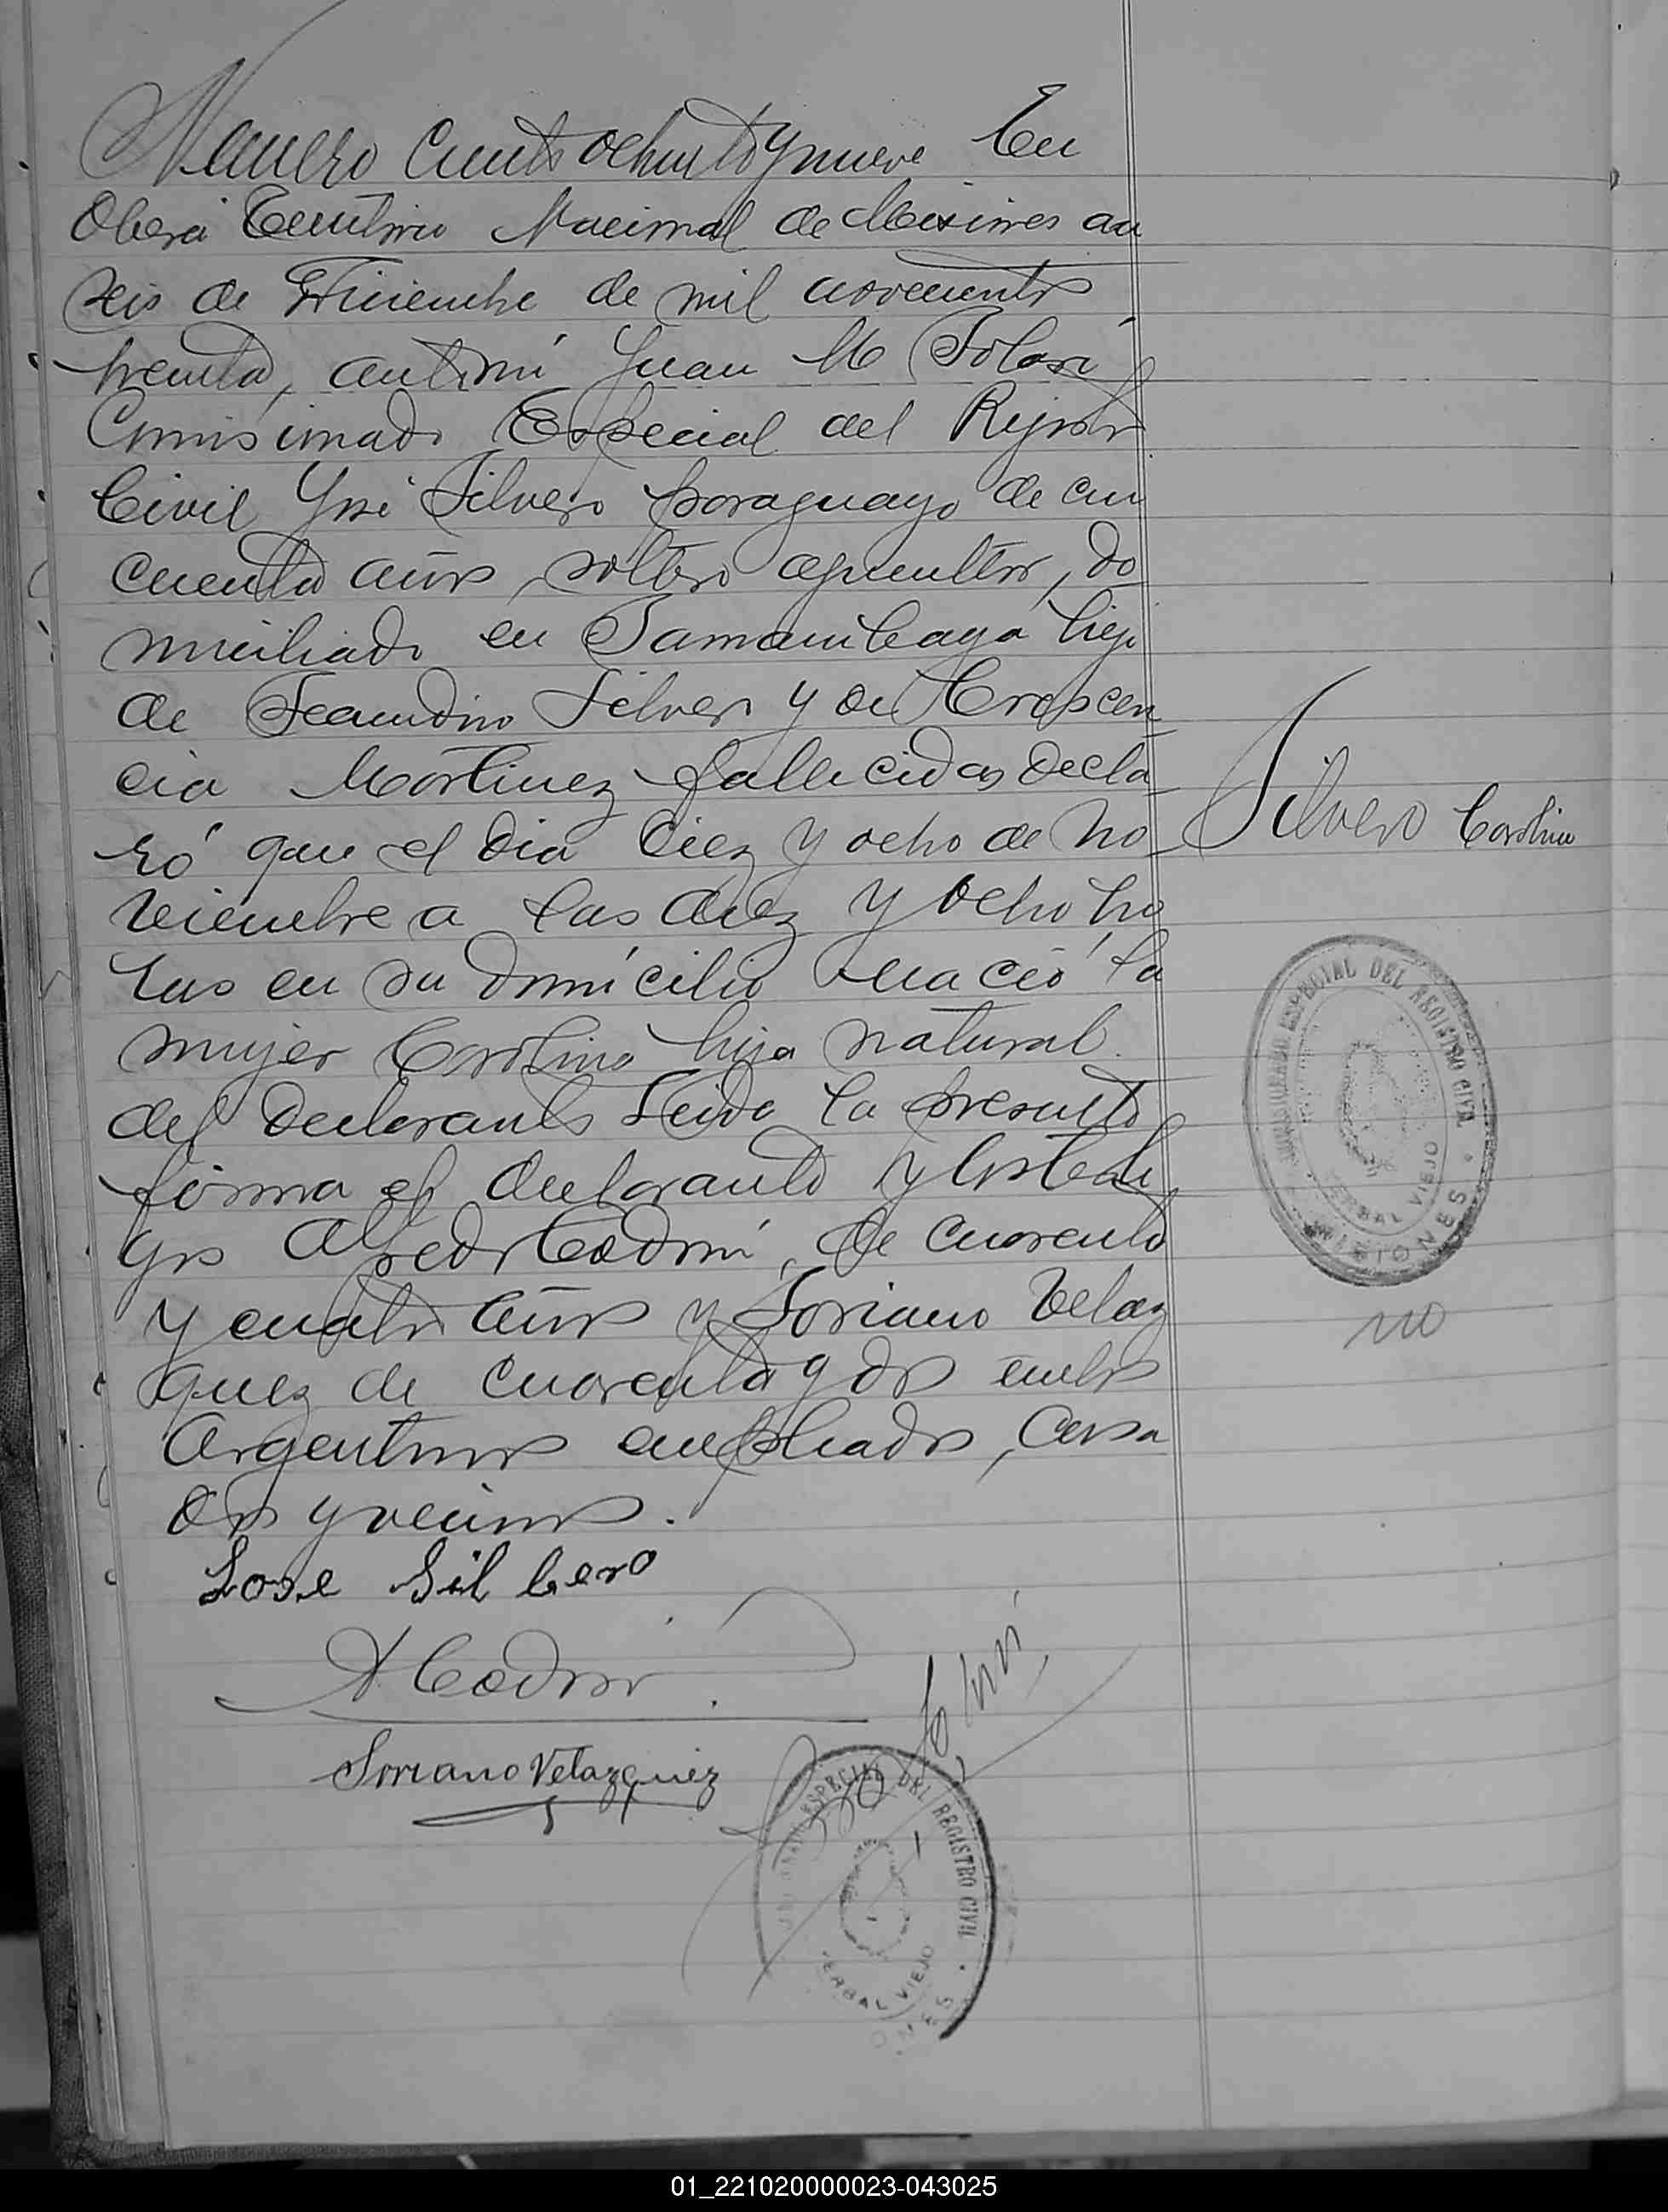 Numero Ciento ochenta y nueve En
Oberá Territorio Nacional de Misiones a
seis de Diciembre de mil novecientos
treinta, ante mí Juan M Solari
Comisionado Especial del Registro
Civil José Silvero paraguayo de cin
cuenta años, soltero agricultor, do
miciliado en Tamambaya hijo
de Leandro Silvero y de Crescen
cia Martinez fallecidos decla
ró que el dia diez y ocho de No
viembre a las diez y ocho ho
ras en su domicilio nació la
mujer Carolina hija natural
del declarante Leida la presente
firma el declarante y los testi
gos Alfredo Codoni, de cuarenta
y cuatro años y Soriano Velaz
quez de cuarenta y dos ambos
Argentinos empleados, casa
dos y vecinos.
Jose Silbero
A Codoni
Soriano Velazquez
Silvero Carolina
COMISIONADO ESPECIAL DEL REGISTRO CIVIL
YERBAL VIEJO
MISIONES
ESPECIAL DEL REGISTRO CIVIL
YERBAL VIEJO
01_221020000023-043025